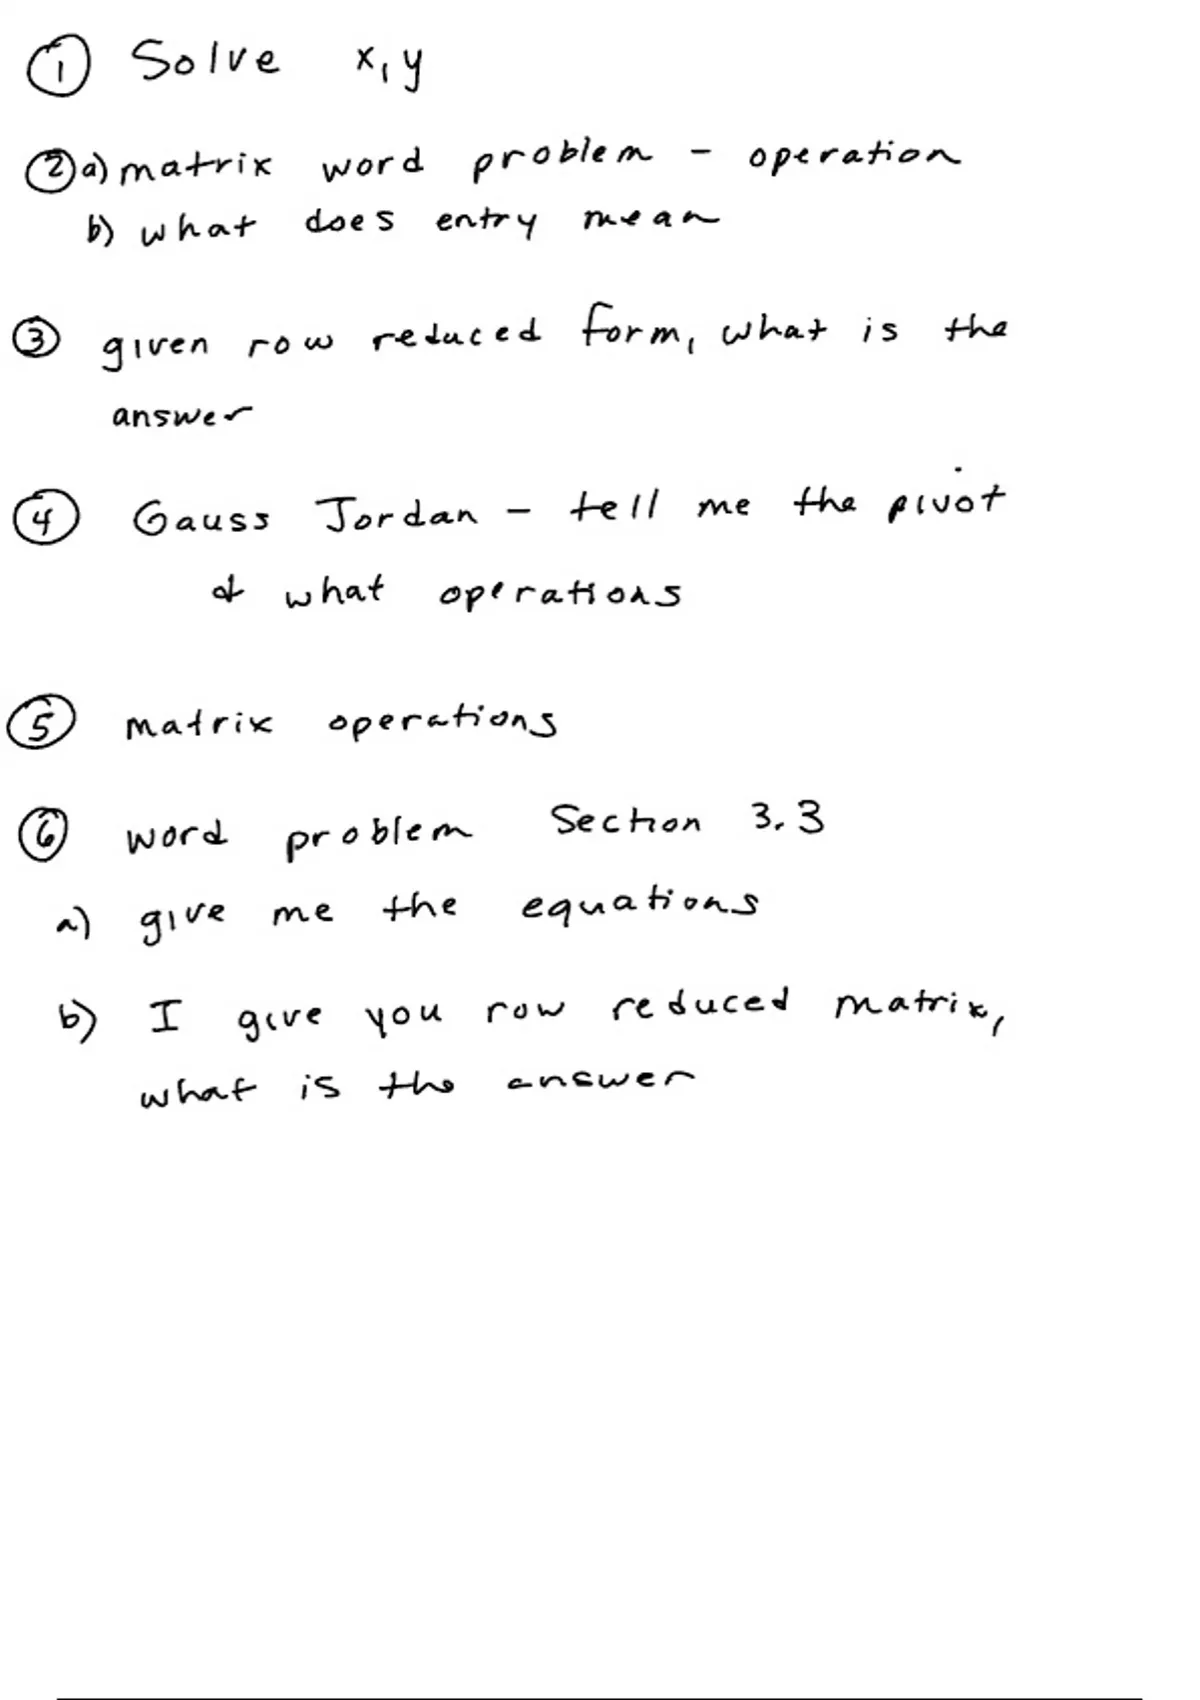 ① Solve x, y
② a) matrix word problem - operation
b) what does entry mean
③ given row reduced form, what is the
answer
④ Gauss Jordan - tell me the pivot
& what operations
⑤ matrix operations
⑥ word problem Section 3.3
a) give me the equations
b) I give you row reduced matrix,
what is the answer